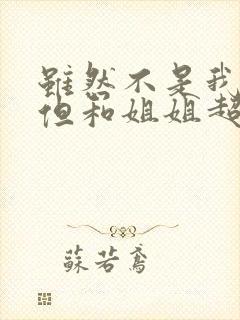 雖然不是我
但和姐姐超
蘇若鳶